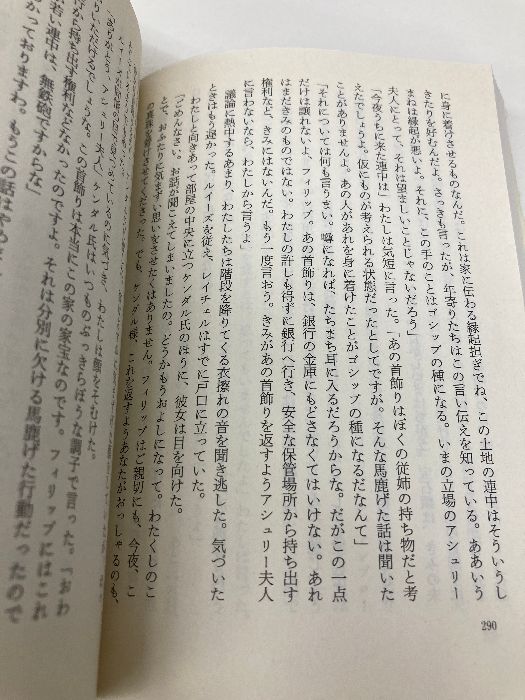 に身に着けさせるものなんだ。これは家に伝わる縁起担ぎでね、この土地の連中はそういうし
きたりを好むんだよ。さっきも言ったが、年寄りたちはこの言い伝えを知っている。ああいう
まねは縁起が悪いよ。それに、この手のことはゴシップの種になる。いまの立場のアシュリー
夫人にとって、それは望ましいことじゃないだろう」
「今夜うちに来た連中は」わたしは気短に言った。「あの首飾りはぼくの従姉の持ち物だと考
えたでしょうよ。仮にものが考えられる状態だったとしてですが。そんな馬鹿げた話は聞いた
ことがありませんよ。あの人があれを身に着けたことがゴシップの種になるだなんて」
「それについては何も言うまい。噂になれば、たちまち耳に入るだろうからな。だがこの一点
だけは譲れないよ、フィリップ。あの首飾りは、銀行の金庫にもどさなくてはいけない。あれ
はまだきみのものではない。わたしの許しも得ずに銀行へ行き、安全な保管場所から持ち出す
権利など、きみにはないんだ。もう一度言おう。きみがあの首飾りを返すようアシュリー夫人
に言わないなら、わたしから言うよ」
議論に熱中するあまり、わたしたちは階段を降りてくる衣擦れの音を聞き逃した。気づいた
ときはもう遅かった。ルイーズを従え、レイチェルはすでに戸口に立っていた。
わたしと向きあって部屋の中央に立つケンダル氏のほうに、彼女は目を向けた。
「ごめんなさい。お話が聞こえてしまいましたの。どうかもうおよしになって。わたくしのこ
とで、おふたりに気まずい思いをさせたくはありません。フィリップはご親切にも、今夜、こ
の真珠を着けさせてくださった。でも、ケンダル様、これを返すようあなたがおっしゃるのも、
290
めているのに気づき、わたしは顔をそむけた。
「ありがとう、アシュリー夫人」ケンダル氏はいつものぶっきらぼうな調子で言った。「おわ
かりいただけるでしょうな。この首飾りは本当にこの家の家宝なのです。フィリップにはこれ
行から持ち出す権利などなかったのですよ。それは分別に欠ける馬鹿げた行動だったので
若い連中は、無鉄砲ですからな」
かっておりますわ。もうこの話はやめ